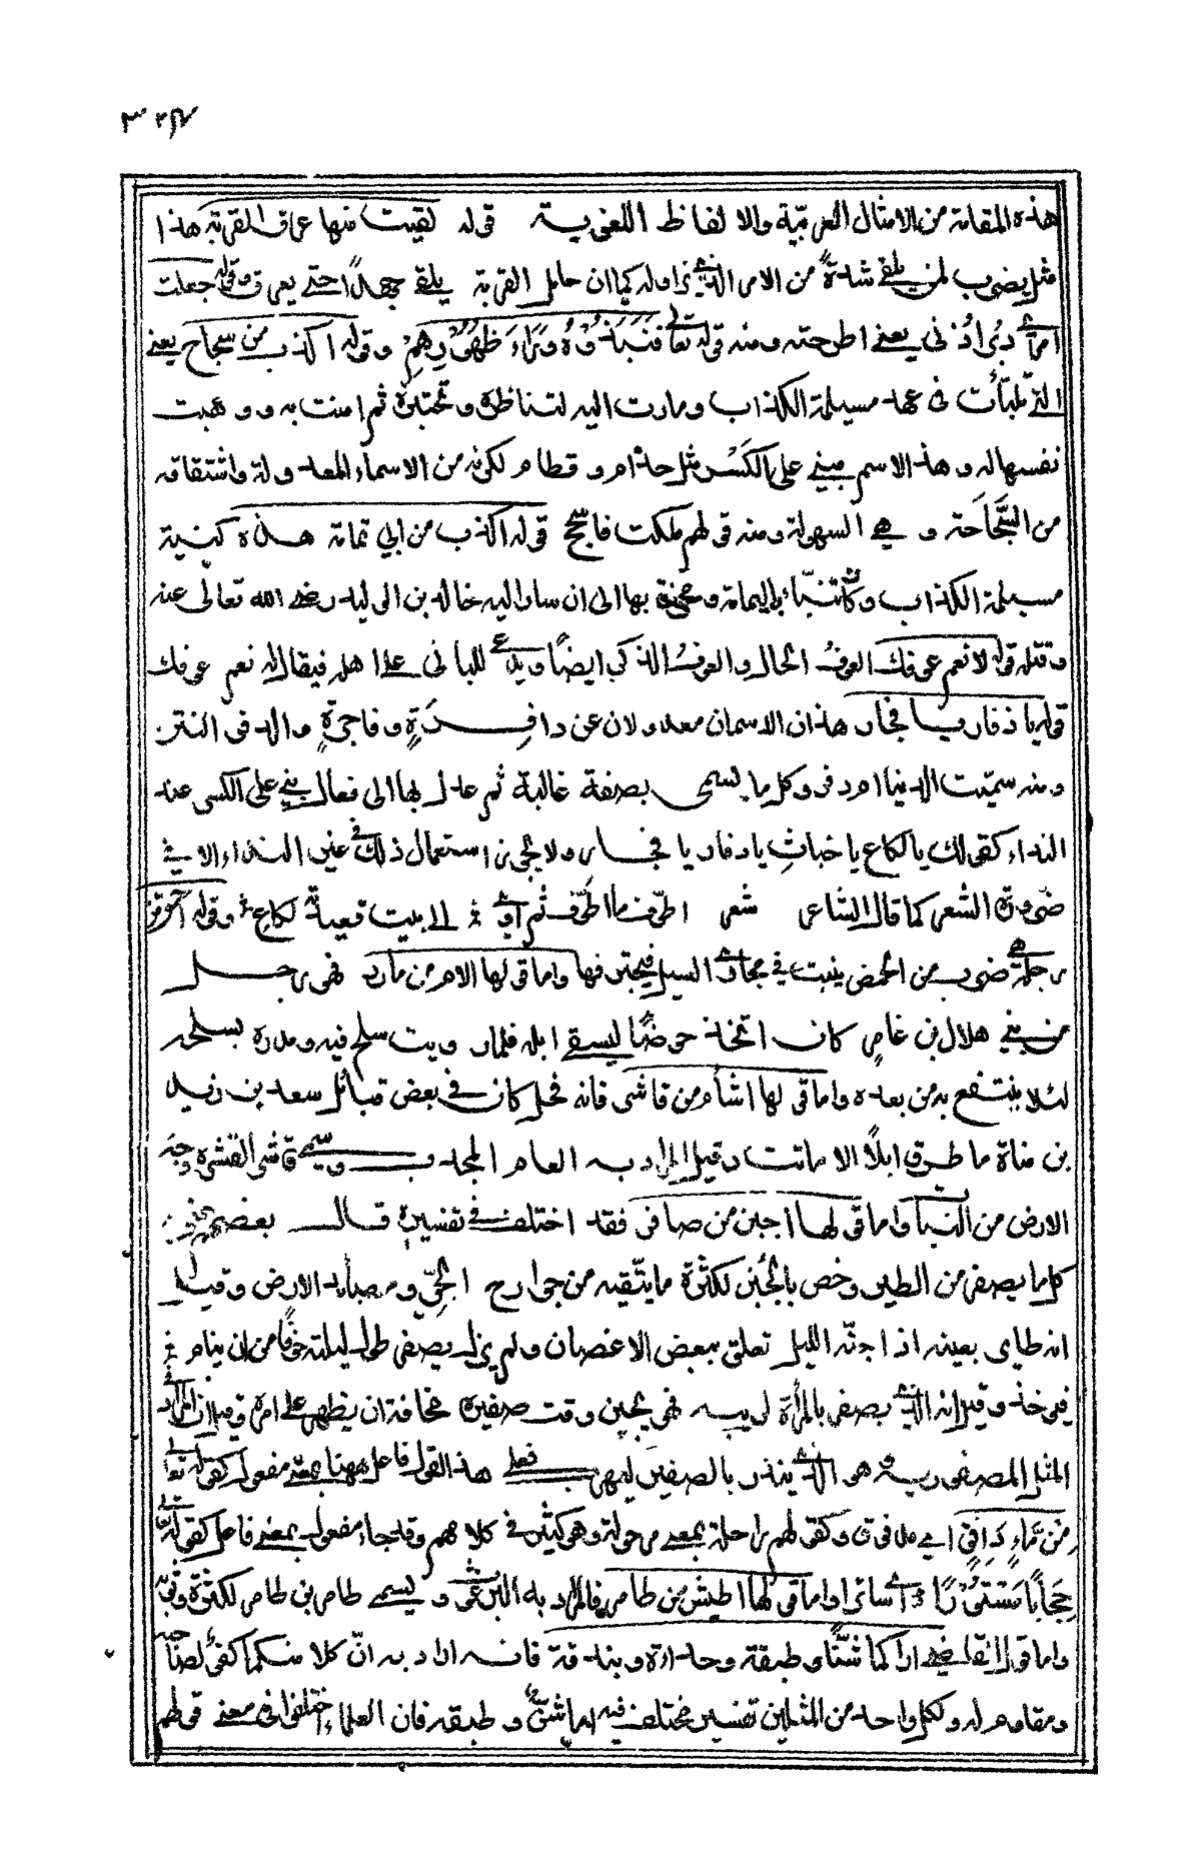 هذه المقامة من الامثال العربيّة والالفاظ اللغوية قوله لقيت منها عرق القربة هذا
مثل يضرب لمن يلقى شدة من الامر الذي يزاوله كما ان حامل القربة يلقى جهدًا حتى يعرق وقوله جعلت
امري دبر اذني يعني اطرحته ومنه قوله تعالى فَنَبَذُوهُ وَرَاءَ ظُهُورِهِمْ وقوله اكذب من سجاح يعني
التي تنبأت في عهد مسيلمة الكذاب وسارت اليه لتناظره وتختبره ثم امنت به ووهبت
نفسها له وهذا الاسم مبني على الكسر مثل حذام وقطام لكونه من الاسماء المعدولة واشتقاقه
من السَّجَاحَة وهي السهولة ومنه قولهم ملكت فاسجح قوله اكذب من ابي ثمامة هذه كنية
مسيلمة الكذاب وكان تنبّأ باليمامة ومخرق بها الى ان سار اليه خالد بن الوليد رضي الله تعالى عنه
وقتله قوله لا نعم عوفك العوفُ الحال والعوفُ الذكر ايضًا ويدعى للباني على اهله فيقال له نعم عوفك
قوله يا دفار يا فجار هذان الاسمان معدولان عن دافِرَةٍ وفاجرةٍ والدفر النتن
ومنه سميّت الدنيا ام دفر وكل ما يسمى بصفة غالبة ثم عدل بها الى فعال بني على الكسر عند
النداء كقولك يا لكاع يا خباثِ يا دفار يا فجار ولا يجوز استعمال ذلك في غير النداء الا في
ضرورة الشعر كما قال الشاعر شعر اطوّف ما اطوّف ثم آوي الى بيت قعيدته لكاع وقوله احمق من
رجلة هي ضرب من الحمض ينبت في مجاري السيل فيجترفها واما قولها الام من مادر فهو رجل
من بني هلال بن عامر كان اتخذ حوضًا ليسقي ابله فلما رويت سلح فيه ومدره بسلحه
لئلا ينتفع به من بعده واما قولها اشأم من قاشر فانه فحل كان في بعض قبائل سعد بن زيد
بن مناة ما طرق ابلًا الا ماتت وقيل المراد به العام المجدب ويسمى قاشر القشره وجه
الارض من النبات واما قولها اجبن من صافر فقد اختلف في تفسيره قال بعضهم
كل ما يصفر من الطير وخص بالجُبن لكثرة ما يتّقيه من جوارح الجوّ ومصائد الارض وقيل
انه طاير بعينه اذا اجنّه الليل تعلق ببعض الاغصان ولم يزل يصفر طول ليلته خوفًا من ان ينام
فيؤخذ وقيل انه الذي يصفر بالمرأة لريبة فهو يجبن وقت صفيره مخافة ان يظهر على امره وقيل ان المراد في
المثل المصفور به هو الذي ينذر بالصفير ليهرب فعلى هذا القول فاعل ههنا بمعنى مفعول كقوله تعالى
مِن مَّاءٍ دَافِقٍ اي مدفوق وكقولهم راحلة بمعنى مرحولة وهو كثير في كلامهم وقد جاء مفعول بمعنى فاعل كقوله تعالى
حِجَابًا مَّسْتُورًا اي ساترا واما قولها اطيش من طامر فالمراد به البرغوث ويسمى طامر بن طامر لكثرة وثبه
واما قول القاضي اراكما شنًّا وطبقة وحدأة وبندقة فانه اراد به انّ كلا منكما كفؤٌ لصاحبه
ومقاوم له ولكل واحد من المثلين تفسير مختلف فيه اما شنّ وطبقه فان العلماء اختلفوا في معنى قولهم